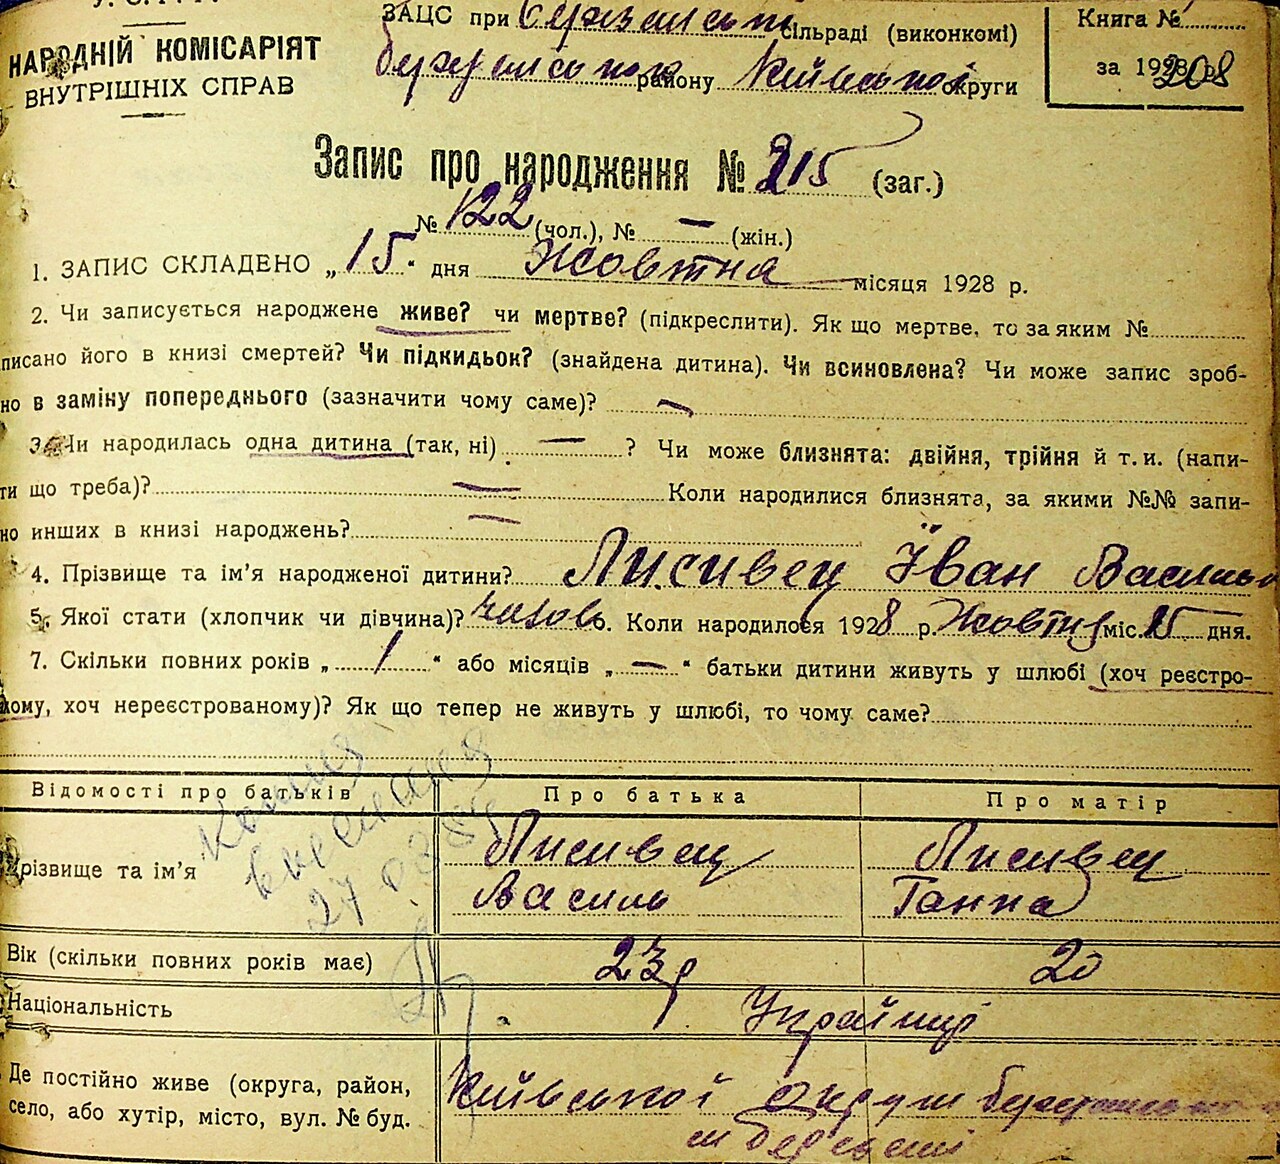 НАРОДНІЙ КОМІСАРІЯТ
ВНУТРІШНІХ СПРАВ
ЗАЦС при сільраді (виконкомі)
району Київської округи
Книга №
за 1928 р. 208
Запис про народження № 215 (заг.)
№ 122 (чол.), № — (жін.)
1. ЗАПИС СКЛАДЕНО „15“ дня Жовтня місяця 1928 р.
2. Чи записується народжене живе? чи мертве? (підкреслити). Як що мертве, то за яким №
писано його в книзі смертей? Чи підкидьок? (знайдена дитина). Чи всиновлена? Чи може запис зроб-
но в заміну попереднього (зазначити чому саме)? —
3. Чи народилась одна дитина (так, ні) — ? Чи може близнята: двійня, трійня й т. и. (напи-
ти що треба)? — Коли народилися близнята, за якими №№ запи-
но инших в книзі народжень? —
4. Прізвище та ім'я народженої дитини? Лисивец Іван Василь
5. Якої стати (хлопчик чи дівчина)? 6. Коли народилося 1928 р. Жовтня міс. 15 дня.
7. Скільки повних років „1“ або місяців „—“ батьки дитини живуть у шлюбі (хоч реєстро-
ному, хоч нереєстрованому)? Як що тепер не живуть у шлюбі, то чому саме?
Відомості про батьків Про батька Про матір
Прізвище та ім'я Лисивец Лисивец
Василь Ганна
Вік (скільки повних років має) 23 р 20
Національність Українці
Де постійно живе (округа, район, Київської округи
село, або хутір, місто, вул. № буд.